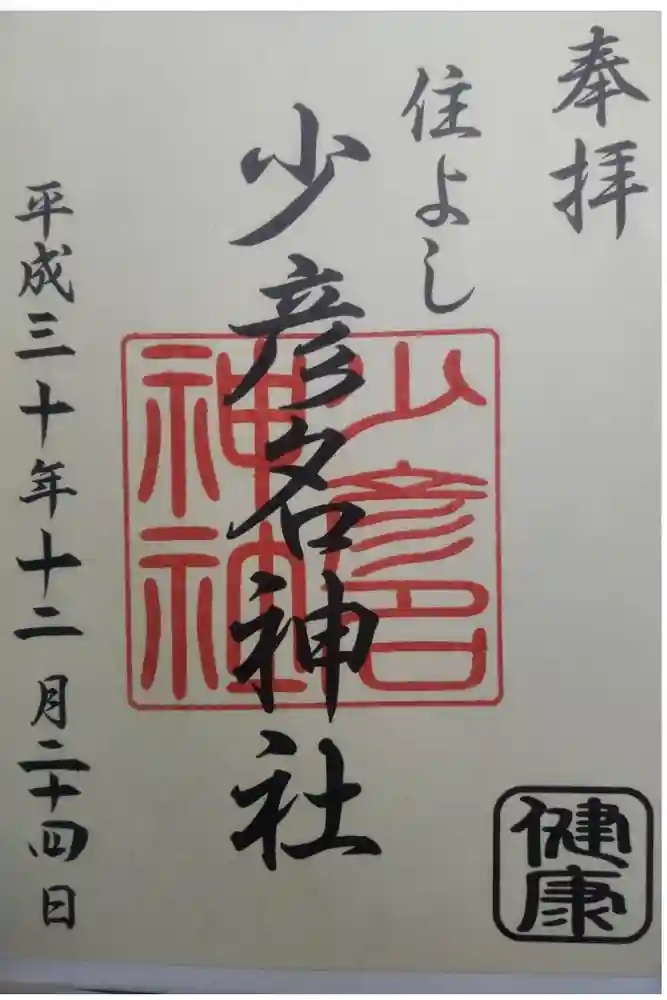 奉拝
住よし
少彦名神社
少彦名
神社
平成三十年十二月二十四日
健康